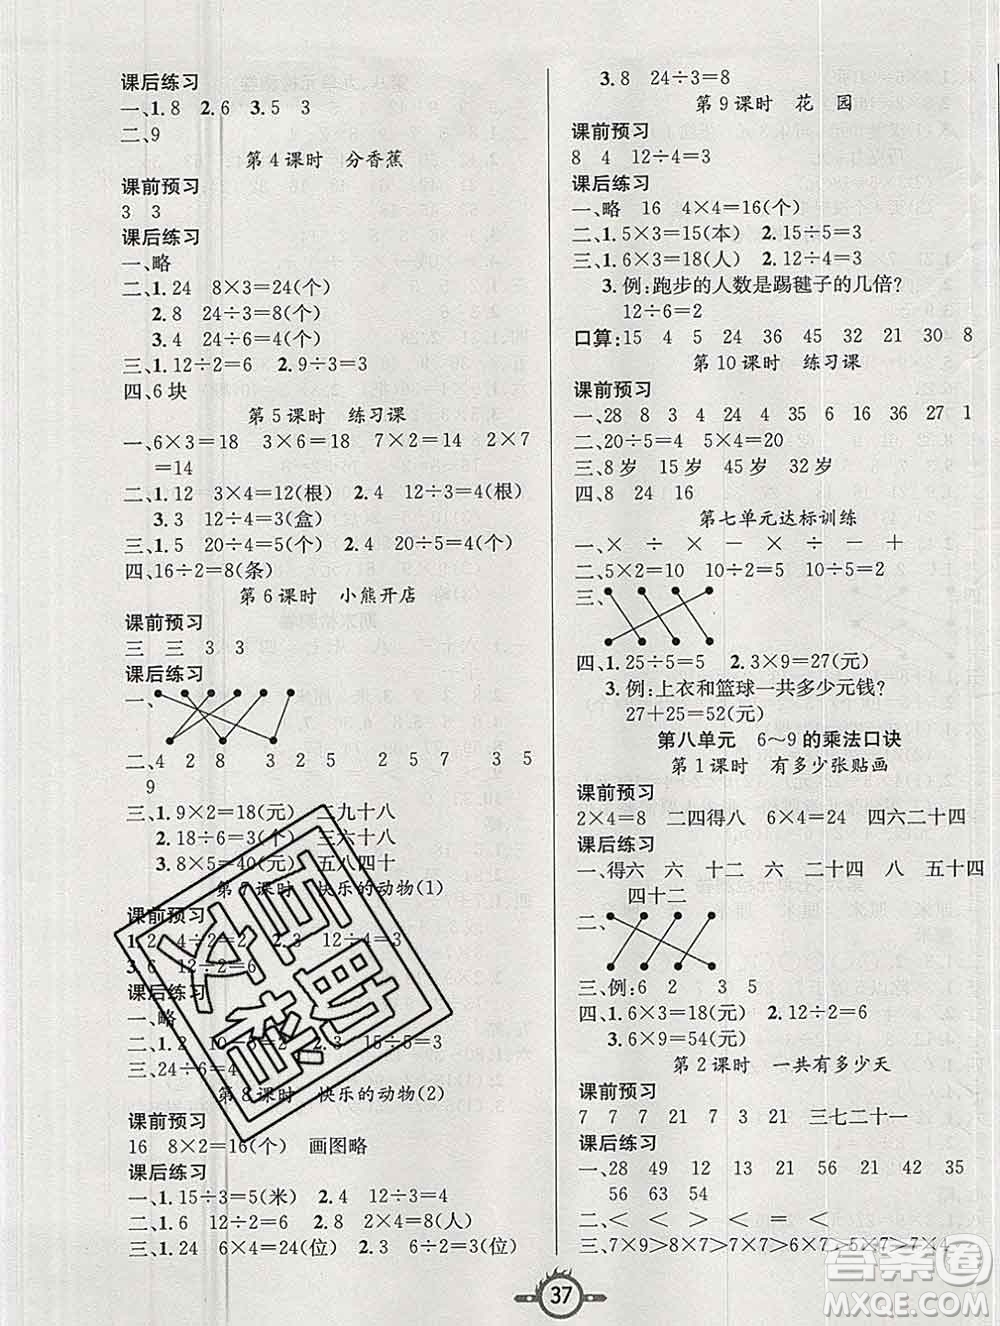 课后练习
一、1.8 2.6 3.5 3
二、9
第4课时 分香蕉
课前预习
3 3
课后练习
一、略
二、1.24 8×3=24(个)
2.8 24÷3=8(个)
3.4 24÷6=4(个)
三、1.12÷2=6 2.12÷3=4
四、6块
第5课时 练习课
一、6×3=18 3×6=18 7×2=14 2×7
=14
二、1.12 3×4=12(根) 2.4 12÷3=4(根)
3.3 12÷4=3(盒)
三、1.5 20÷4=5(个) 2.4 20÷5=4(个)
四、16÷2=8(条)
第6课时 小熊开店
课前预习
三 三 3 3
课后练习
一、
二、4 2 8 3 5 2 7 3 5
9
三、1.9×2=18(元) 二九十八
2.18÷6=3(元) 三六十八
3.8×5=40(元) 五八四十
第7课时 快乐的动物(1)
课前预习
1.2 4÷2=2 2.3 12÷4=3
3.6 12÷2=6
课后练习
一、略
二、1.2 10÷5=2 2.3 15÷5=3
三、24÷6=4
第8课时 快乐的动物(2)
课前预习
16 8×2=16(个) 画图略
课后练习
一、1.15÷3=5(米) 2.4 12÷3=4
二、1.6 12÷2=6 2.8 2×4=8(人)
三、1.24 6×4=24(位) 2.3 6÷2=3(位)
3.8 24÷3=8
第9课时 花 园
课前预习
8 4 12÷4=3
课后练习
一、略 16 4×4=16(个)
二、1.5×3=15(本) 2.15÷5=3
三、1.6×3=18(人) 2.12÷4=3
3.例:跑步的人数是踢毽子的几倍?
12÷6=2
口算:15 4 5 24 36 45 32 21 30 8
第10课时 练习课
课前预习
一、28 8 3 4 24 4 35 6 16 36 27 1
二、20÷5=4 5×4=20
三、8岁 15岁 45岁 32岁
四、8 24 16
第七单元达标训练
一、× ÷ × - × ÷ - +
二、5×2=10 10÷2=5 10÷5=2
三、
四、1.25÷5=5 2.3×9=27(元)
3.例:上衣和篮球一共多少元钱?
27+25=52(元)
第八单元 6~9的乘法口诀
第1课时 有多少张贴画
课前预习
2×4=8 二四得八 6×4=24 四六二十四
课后练习
一、得六 六 十二 六 二十四 八 五十四
四十二
二、
三、例:6 2 3 5
四、1.6×3=18(元) 2.12÷2=6
3.6×9=54(元)
第2课时 一共有多少天
课前预习
7 7 7 21 7 3 21 三七二十一
课后练习
一、28 49 12 56 21 42 42 35
56 63 54
二、< < < < = <
三、7×9>8×7>7×7>6×7>5×7>7×4
37
答案圈
MXQE.COM